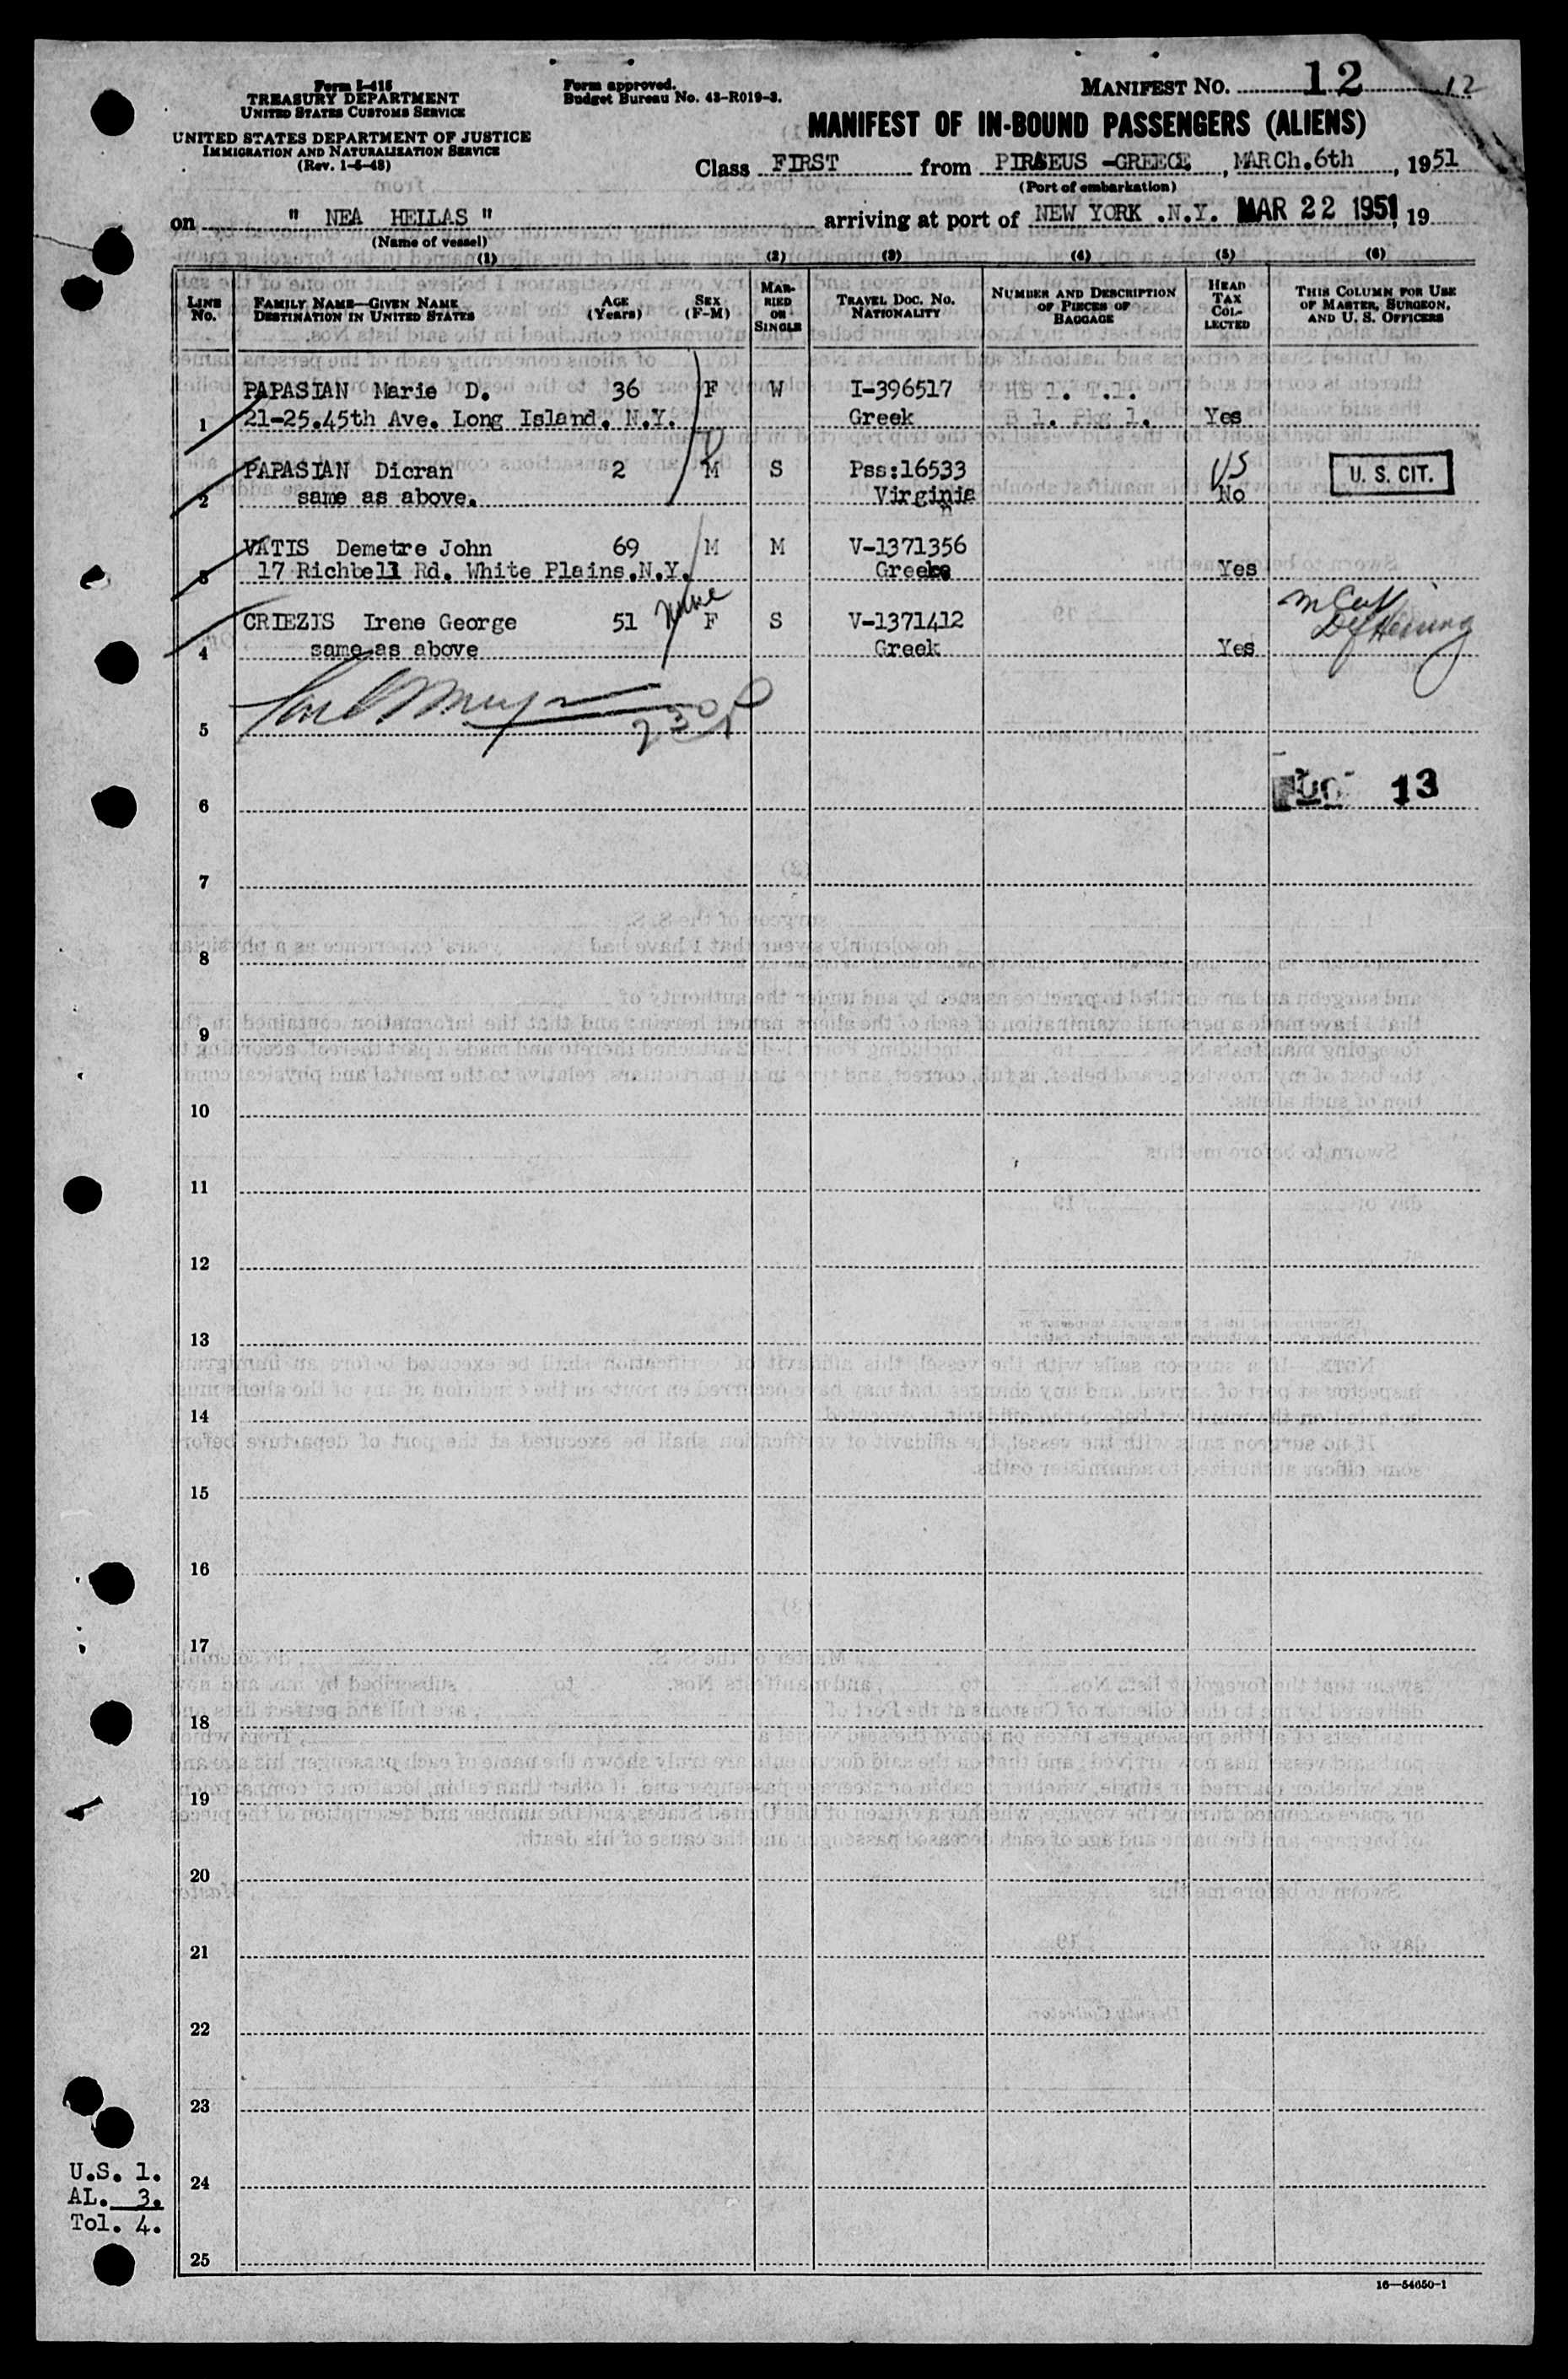 Form I-415
TREASURY DEPARTMENT
UNITED STATES CUSTOMS SERVICE
UNITED STATES DEPARTMENT OF JUSTICE
IMMIGRATION AND NATURALIZATION SERVICE
(Rev. 1-5-48)
Form approved.
Budget Bureau No. 43-R019-3.
MANIFEST NO. 12 12
MANIFEST OF IN-BOUND PASSENGERS (ALIENS)
Class FIRST from PIRAEUS -GREECE, MARCh.6th, 1951
(Port of embarkation)
on " NEA HELLAS " arriving at port of NEW YORK .N.Y. MAR 22 1951, 19
(Name of vessel)
(1) (2) (3) (4) (5) (6)
LINE No. FAMILY NAME—GIVEN NAME DESTINATION IN UNITED STATES AGE (Years) SEX (F-M) MARRIED OR SINGLE TRAVEL DOC. NO. NATIONALITY NUMBER AND DESCRIPTION OF PIECES OF BAGGAGE HEAD TAX COLLECTED THIS COLUMN FOR USE OF MASTER, SURGEON, AND U. S. OFFICERS
PAPASIAN Marie D. 36 F W I-396517 HB 1. T.1.
1 21-25.45th Ave. Long Island. N.Y. Greek B 1. Pkg 1. Yes
PAPASIAN Dicran 2 M S Pss:16533 US U. S. CIT.
2 same as above. Virginia No
VATIS Demetre John 69 M M V-1371356
3 17 Richbell Rd. White Plains.N.Y. Greek Yes
CRIEZIS Irene George 51 F S V-1371412
4 same as above Greek Yes
5
6 13
7
8
9
10
11
12
13
14
15
16
17
18
19
20
21
22
23
24
25
U.S. 1.
AL. 3.
Tol. 4.
16—54650-1